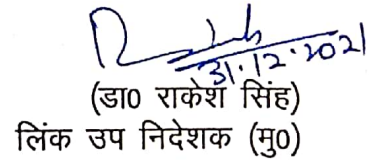 31.12.2021
(डा0 राकेश सिंह)
लिंक उप निदेशक (मु0)